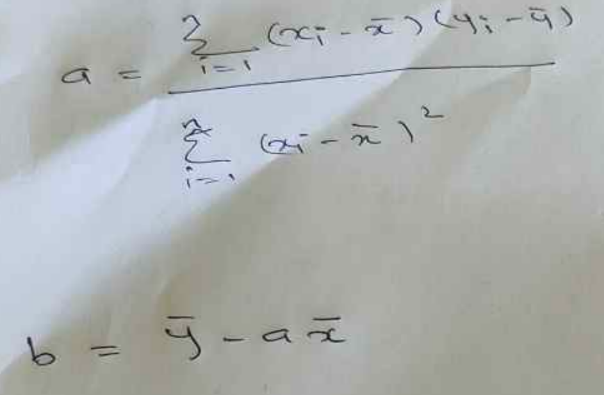 a = \frac{\sum_{i=1}^{n} (x_i - \bar{x})(y_i - \bar{y})}{\sum_{i=1}^{n} (x_i - \bar{x})^2}
b = \bar{y} - a\bar{x}